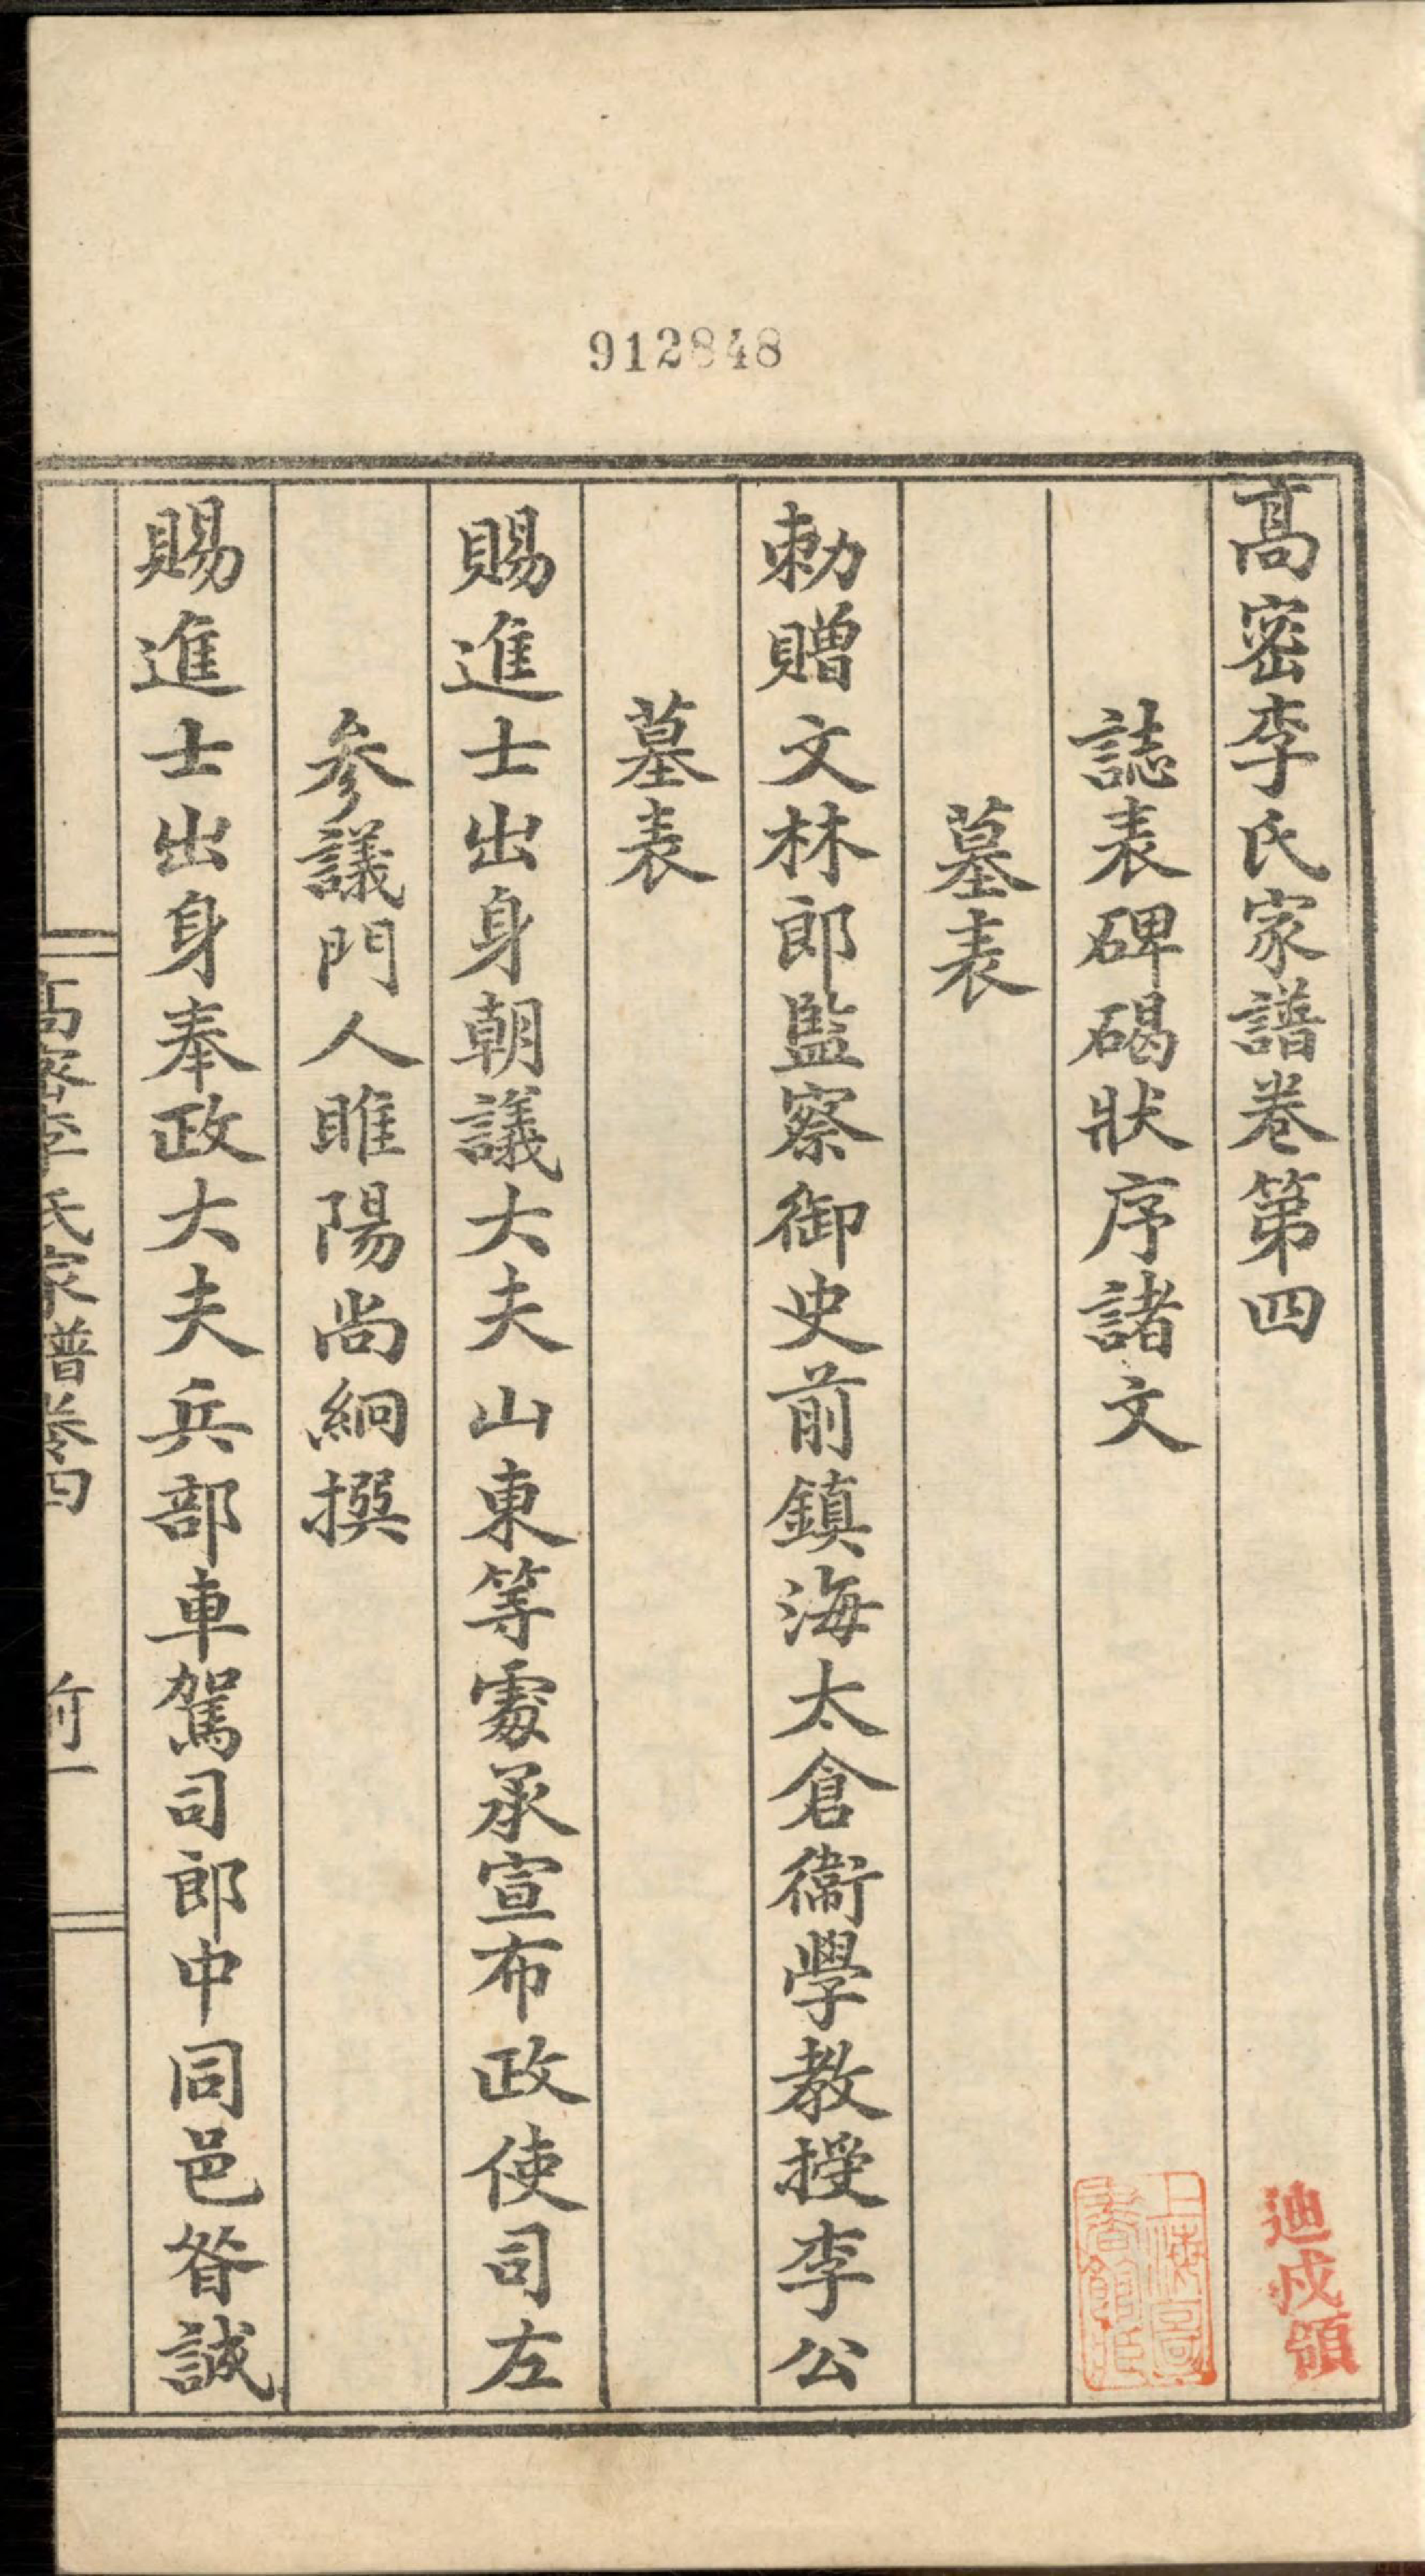 912848
高密李氏家譜卷第四
迪戍領
誌表碑碣狀序諸文
墓表
勅贈文林郎監察御史前鎮海太倉衞學教授李公
墓表
賜進士出身朝議大夫山東等處承宣布政使司左
參議門人睢陽尚絅撰
賜進士出身奉政大夫兵部車駕司郎中同邑昝誠
高密李氏家譜卷四
前一